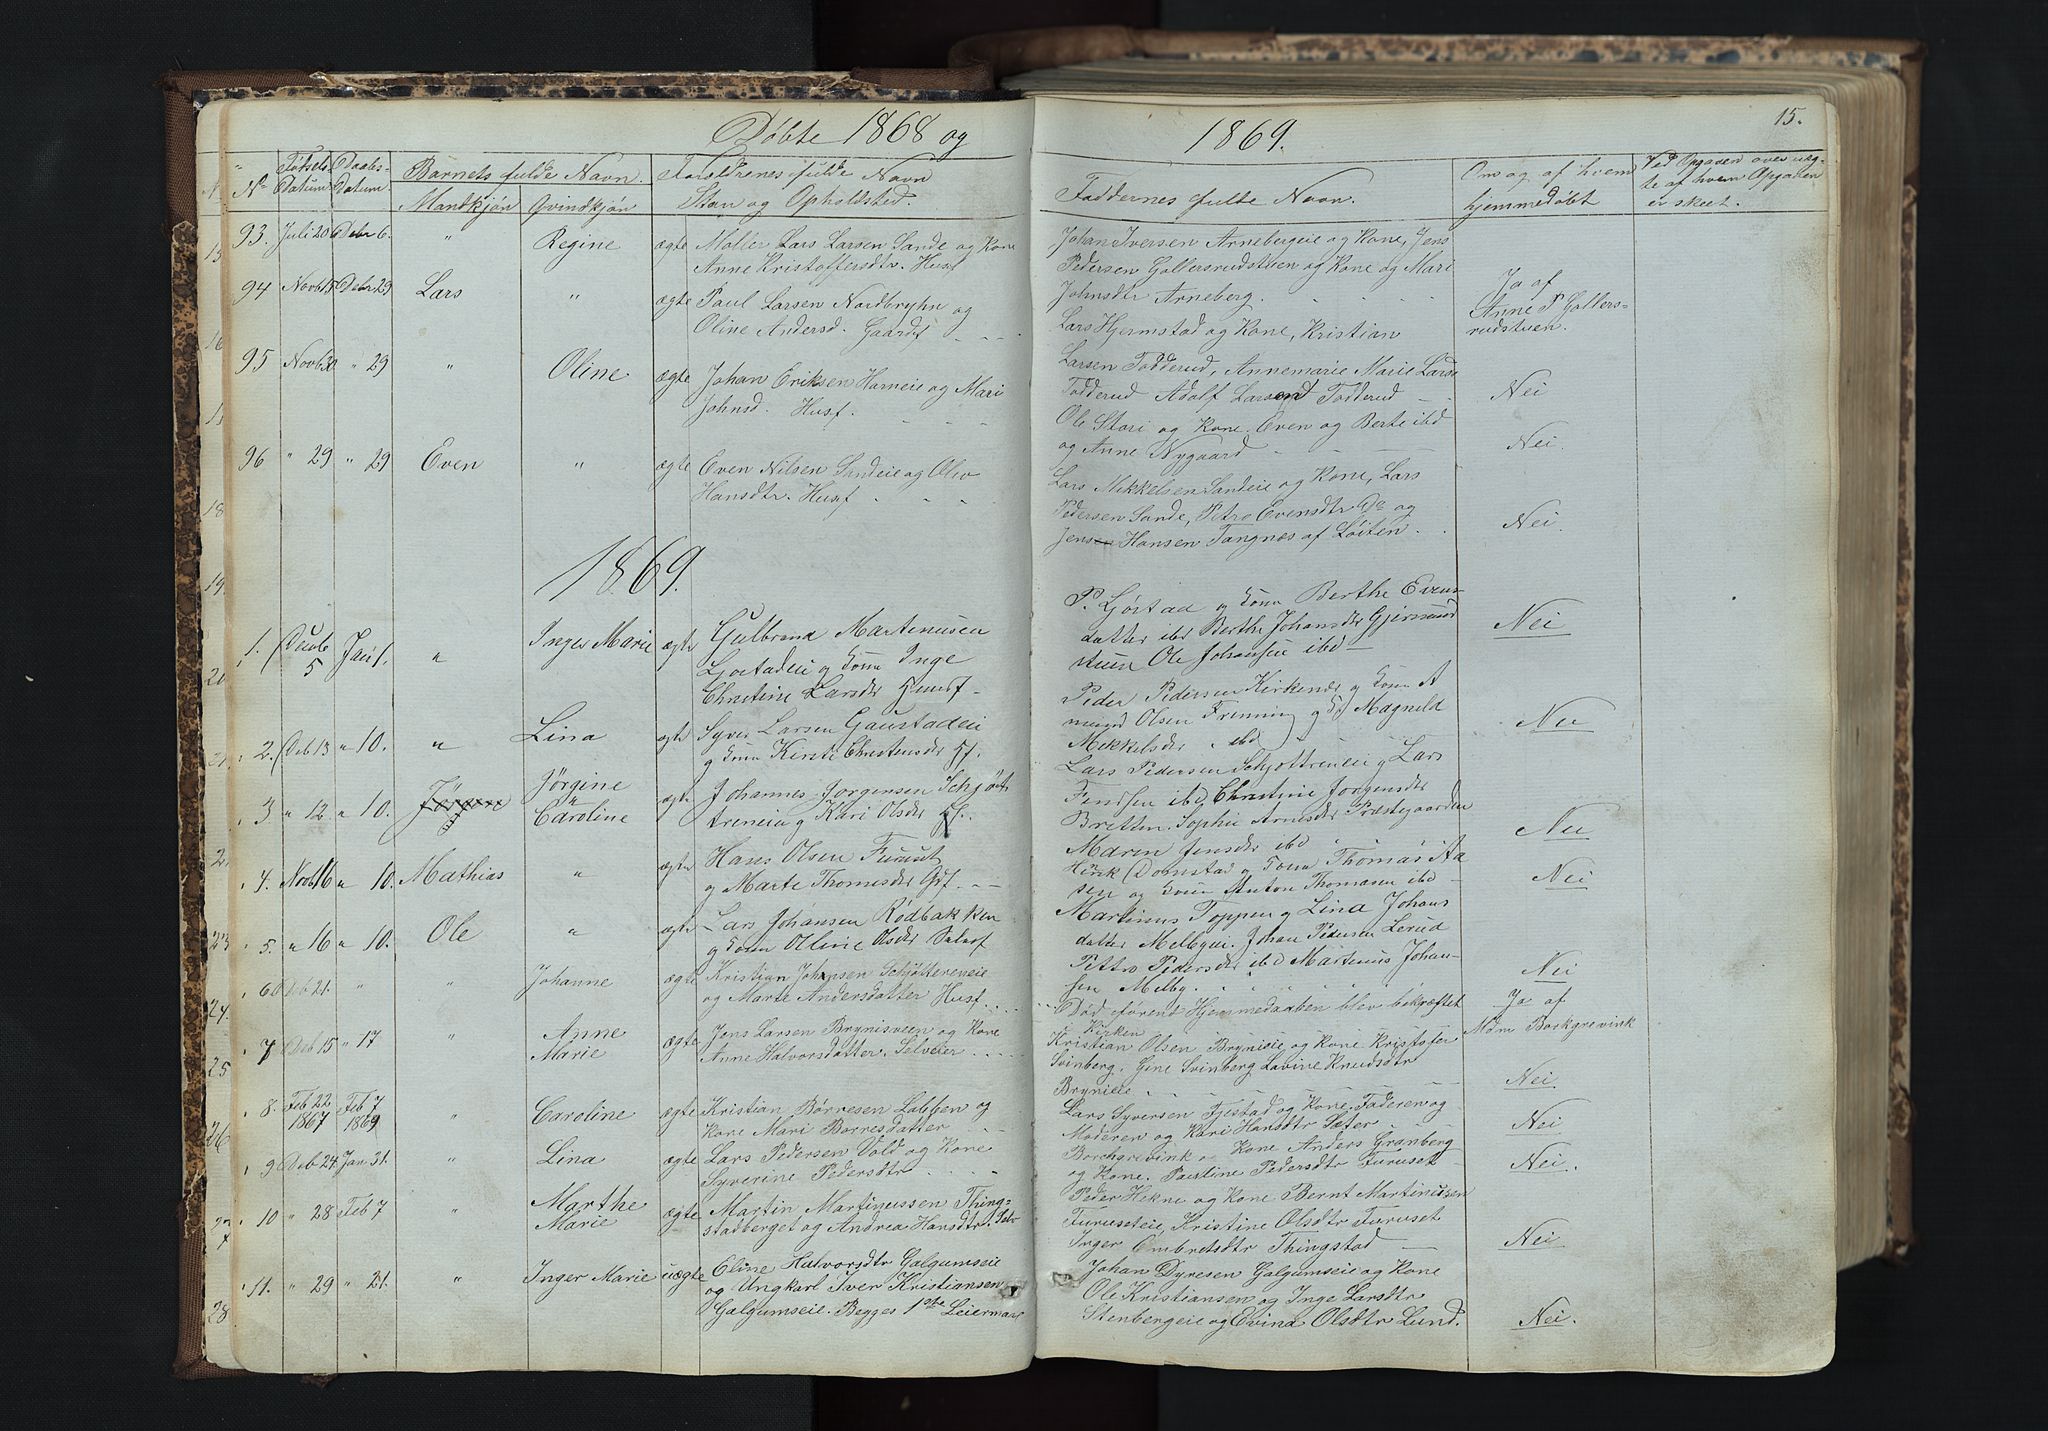 Døbte 1868 og
1869.
15.
No
Fødsels Datum
Daabs-Datum
Barnets fulde Navn.
Mandkjøn
Qvindkjøn
Forældrenes fulde Navn
Stan og Opholdsted.
Faddernes fulde Navn.
Om og af hvem
hjemmedøbt
Ved Opgaven over uæg-
te af hvem Opgaven
er skeet.
93. Juli 20 Debr 6. " Regine ægte Møller Lars Larsen Sande og Kone
Anne Kristoffersdtr. Husf
Johan Iversen Arnebergeie og Kone, Jens
Pedersen Gallersrudstuen og Kone og Mari
Johnsdtr Arneberg.
Ja af
Anne P Gallers-
rudstuen.
94 Novb 15 Debr 29 Lars " ægte Paul Larsen Nordbryhn og
Oline Andersd. Gaardf
Lars Hjermstad og Kone, Kristian
Larsen Todderud, Annemarie Marie Larsd
Todderud Adolf Larsen Todderud
Nei
95 Novb 30 " 29 " Oline ægte Johan Eriksen Horneie og Mari
Johnsd. Husf.
Ole Stori og Kone. Even og Berte ibd
og Anne Nygaard
Nei
96 " 29 " 29 Even " ægte Even Nilsen Sandeie og Oliv
Hansdtr. Husf
Lars Mikkelsen Sandeie og Kone, Lars
Pedersen Sande, Petro Evensdtr Do og
Jens Hansen Tangnæs af Løiten.
Nei
1869.
1. Decb 5 Jan 1. " Inger Marie ægte Gulbrand Martinusen
Gjørstadeie og Kone Inge
Christine Larsdtr Huusf
P. Gjørstad og Kone Berthe Evens-
datter ibd Berthe Johansdtr Gjermund
stuen Ole Johansen ibd
Nei
2. Deb 13 " 10. " Lina ægte Syver Larsen Gaustadeie
og Kone Kirsti Christensdtr Hf.
Peder Pedersen Kirkenær og Kone A
mund Olsen Frenning og Magnild
Mikkelsdtr ibd
Nei
3 " 12 " 10. Jørgen Jørgine
Caroline ægte Johannes Jørgensen Schjøt
treneie og Kari Olsdtr Hf.
Lars Pedersen Schjøttreneie og Lars
Findsen ibd Christine Jørgensdtr
Britten. Sophie Arnesdtr Præstegaarden
Maren Jensdtr ibd
Nei
4. Novb 16 " 10. Mathias " ægte Hans Olsen Furuset
og Marte Thomesdtr Gdf.
Henrik Domstad og Kone Thomas Aa
sen og Kone Anton Thomasen ibd
Nei
5. " 16 " 10. Ole " ægte Lars Johansen Rødbakken
og Kone Olline Olsdtr Selvf
Martinus Toppen og Lina Johans
datter Melbyeie. Johan Pedersen Lerud
Pettro Pedersdtr ibd Martinus Johan-
sen Melby.
Nei
6 Deb 21. " " Johanne ægte Kristian Johansen Schjøttereneie
og Marte Andersdatter Husf.
Død førend Hjemmedaaben blev bekræftet
i Kirken
Ja af
Mdm Borkgrevink
7 Deb 15 " 17 " Anne
Marie ægte Jens Larsen Brynisveen og Kone
Anne Halvorsdatter. Selveier
Kristian Olsen Brynieie og Kone Kristofer
Svinberg. Gine Svinberg Lavine Knudsdtr
Brynieie
Nei.
8. Feb 22
1867 Feb 7
1869 " Caroline ægte Kristian Børresen Labben og
Kone Mari Borresdatter
Lars Syversen Fjestad og Kone. Faderen og
Moderen og Kari Hansdtr Sæter
Nei
9. Deb 24. Jan 31. " Lina ægte Lars Pedersen Vold og Kone
Syverine Pedersdtr
Borchgrevink og Kone Anders Granberg
og Kone. Paustine Pedersdtr Furuset
Nei.
10 " 28 Feb 7 " Marthe
Marie ægte Martin Martinussen Thing-
stadberget og Andrea Hansdtr. Selv
Peder Hekne og Kone Bernt Martinussen
Furuseteie, Kristine Olsdtr Furuset
Inger Ombretsdtr Thingstad
Nei
11. " 29 " 21. " Inger Marie uægte Oline Halvorsdtr Galgumseie
og Ungkarl Iver Kristiansen
Galgumseie. Begges 1ste Leiermaal
Johan Dyresen Galgumseie og Kone
Ole Kristiansen og Inge Larsdtr
Stenbergeie og Evina Olsdtr Lund.
Nei.